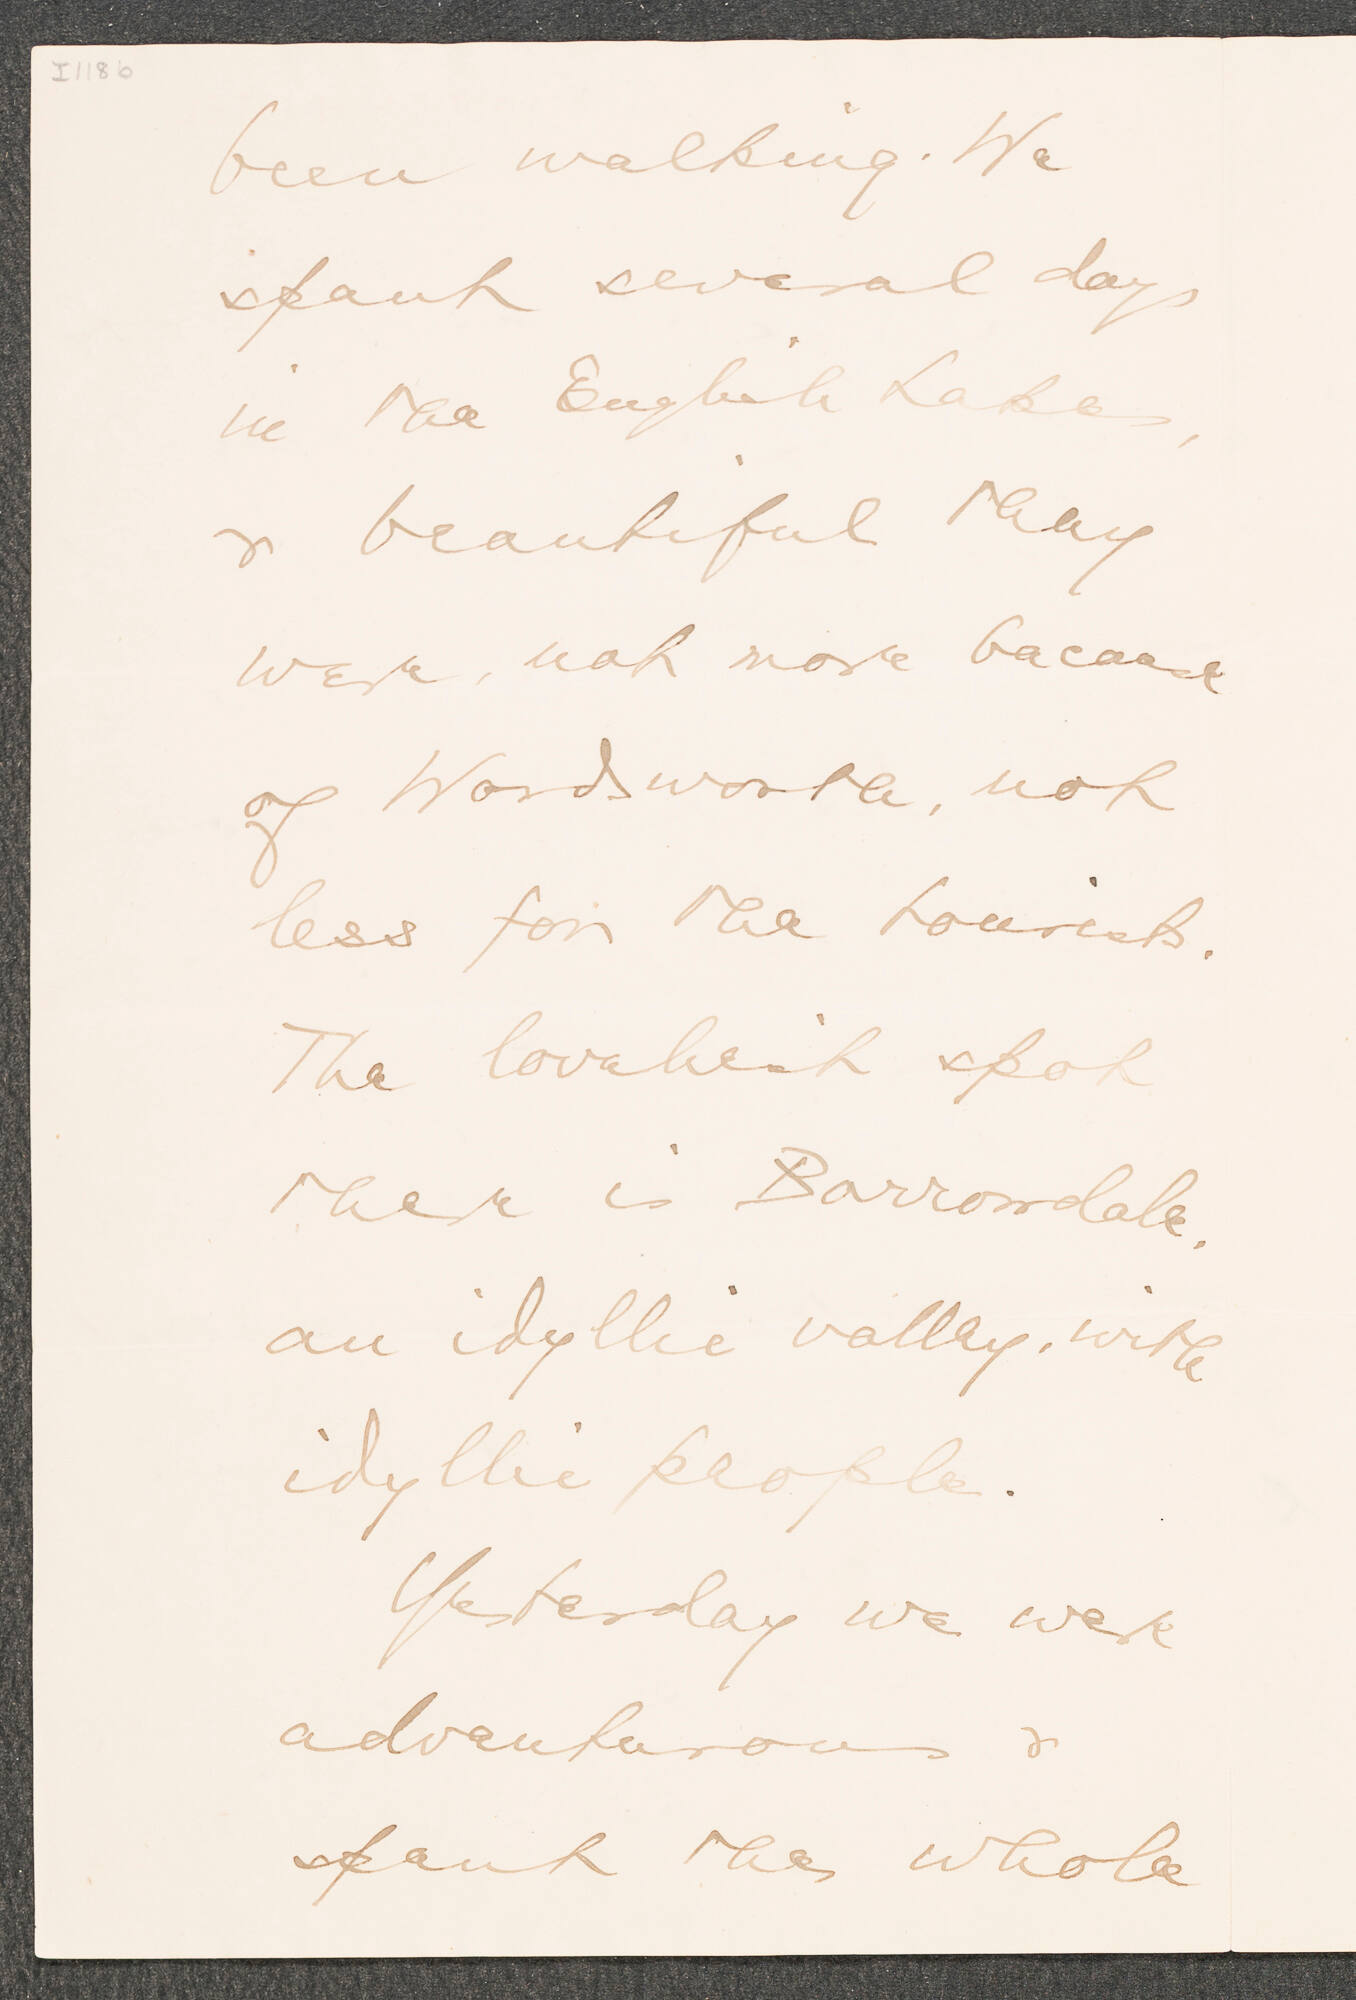 I118b
been walking. We
spent several days
in the English Lakes,
& beautiful they
were, not more because
of Wordsworth, not
less for the tourists.
The loveliest spot
there is Borrowdale,
an idyllic valley, with
idyllic people.
Yesterday we were
adventurous &
spent the whole